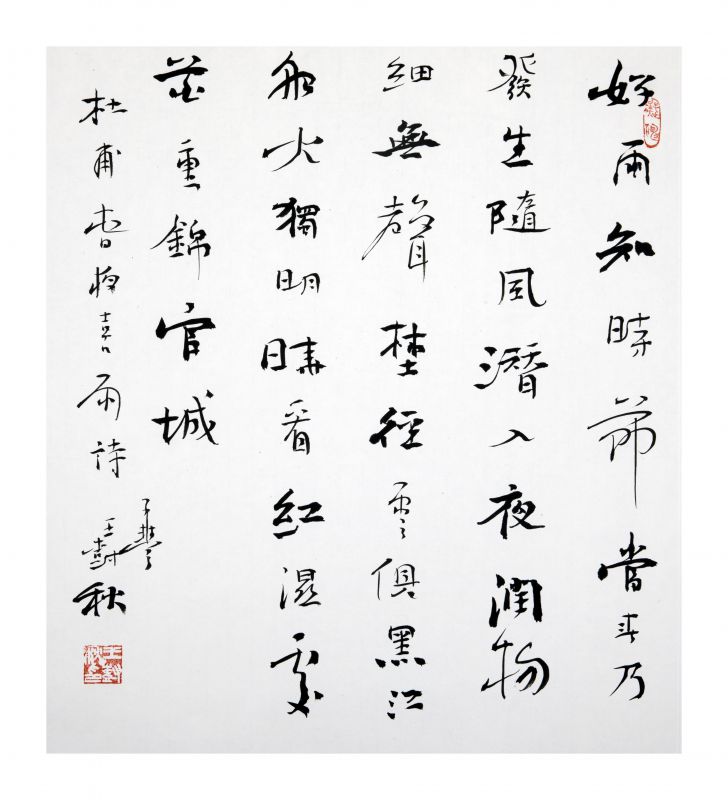 好雨知時節當春乃
發生隨風潛入夜潤物
細無聲埜徑雲俱黑江
船火獨明曉看紅濕處
花重錦官城
杜甫春夜喜雨詩
王秋